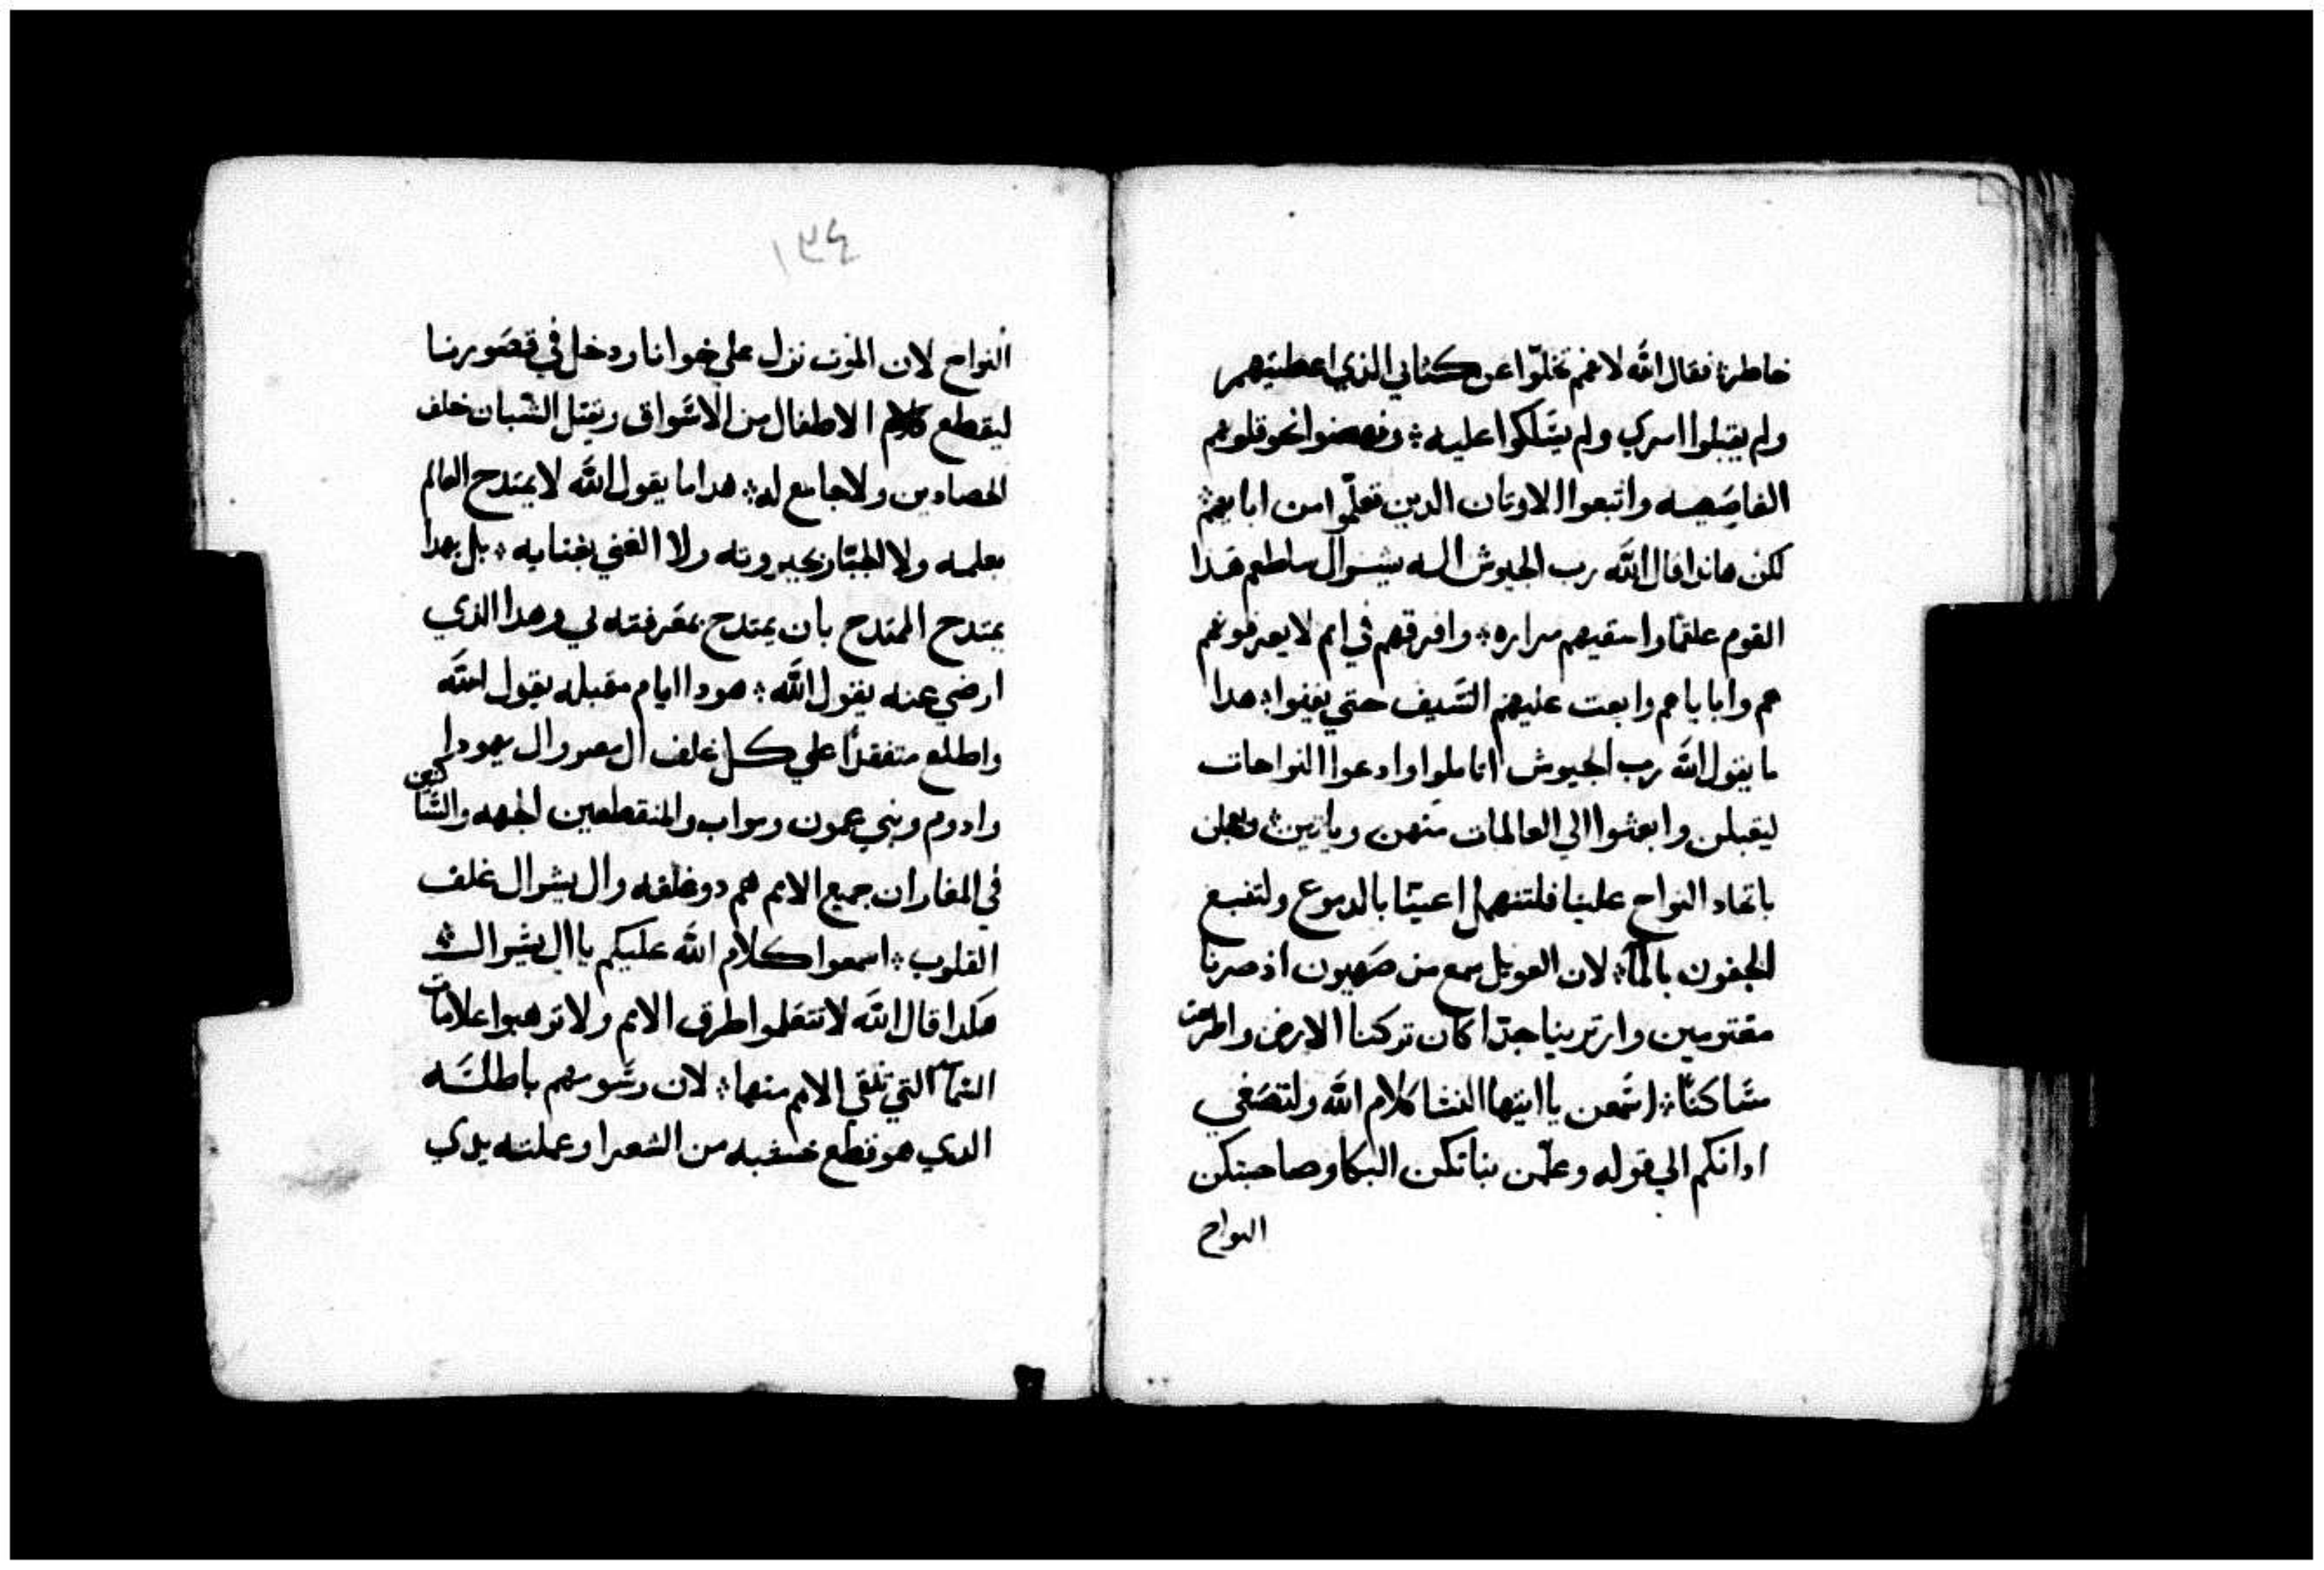 خاطر؞ فقال الله لانهم تخلّوا عن كتابي الذي اعطيتهم
ولم يقبلوا امري ولم يسلكوا عليه ؞ ونهضوا نحو قلوبهم
القاصيه واتبعوا الاوتان الدين تعلّموا من ابايهم؞
لكن هاندا قال الله رب الجيوش اله يشرال ساطعم هدا
القوم علقمًا واسقيهم مراره ؞ وافرقهم في امم لا يعرفونهم
هم وابايهم وابعت عليهم السيف حتي يفنوا؞ هدا
ما يقول الله رب الجيوش اتاملوا وادعوا النواحات
ليقبلن وابعثوا الي العالمات منهن وياتين؞
باتحاد النواح علينا فلتنهمل اعيننا بالدموع ولتنبع
الجفون بالما؞ لان العويل سمع من صهيون اذ صرنا
مغتومين جدًا كان تركنا الارض واطرحت
مساكننا؞ اسمعن يا ايتها النسا كلام الله ولتصغي
ادانكم الي قوله وعلّمن بناتكن البكا وصاحبتكن
النواح
١٣٤
النواح لان الموت نزل علي خوانا ودخل في قصورنا
ليقطع الاطفال من الاسواق ويقتل الشبان خلف
الحصادين ولا جامع له؞ هدا ما يقول الله لا يمتدح العالم
بعلمه ولا الجبّار بجبروته ولا الغني بغنايه ؞ بل بهدا
يمتدح الممتدح بان يمتدح بمعرفته لي وهدا الذي
ارضي عنه يقول الله ؞ هودا ايام مقبله يقول الله
واطلع متفقدًا علي كل غلف ال مصر وال يهودا
وادوم وبني عمون ومواب والمنقطعين الجهه والساكنين
في القفار ان جميع الامم هم دو غلفه وال يشرال غلف
القلوب ؞ اسمعوا كلام الله عليكم يا ال يشرال ؞
هكدا قال الله لا تتعلموا طرق الامم ولا ترهبوا علامات
السما التي تتقي الامم منها؞ لان رسومهم باطلسه
الدي هو قطع خشبه من الشعرا وعملته يدي